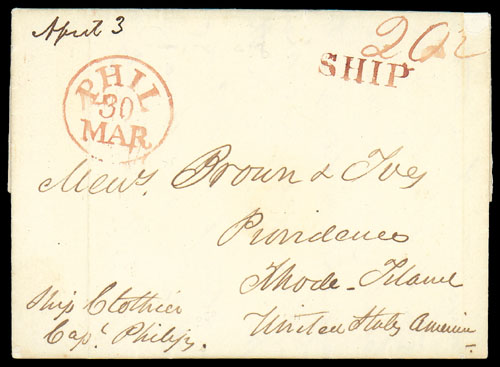 April 3
20½
SHIP
PHIL
30
MAR
Messrs. Brown & Ives
Providence
Rhode-Island
United States America
Ship Clothier
Capt. Philips.